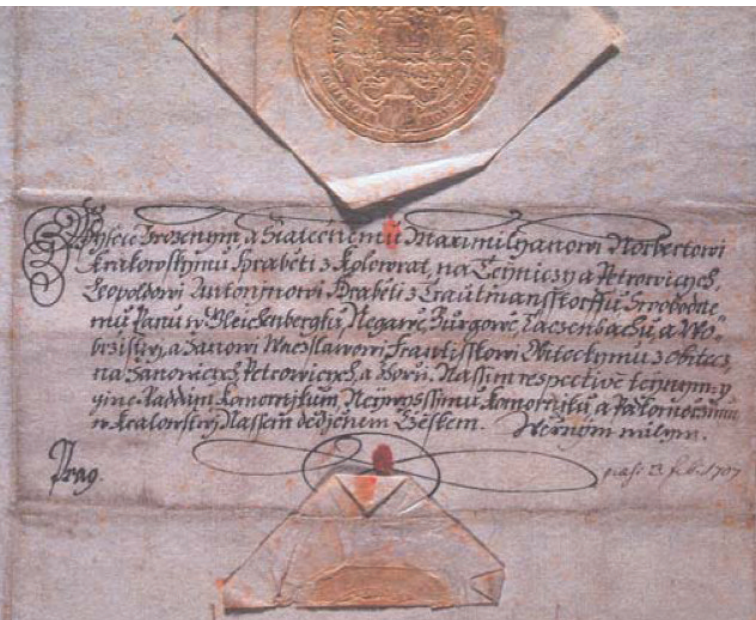 Wysoce Urozenym, a Statecznému Maximilyanowi Norbertowi
Krakowskýmu Hraběti z Kolowrat, na Teyniczy a Petrowicych,
Leopoldowi Antonjnowi Hraběti z Trautmansstorffu Swobodné
mu Panu w Gleichenbergku, Negawě, Burgowě, Taczenbachu, a Wo
brzistwj, a Janowi Waczslawowi Frantisskowi Witockymu z obitecz,
na Janowicych, Petrowicych, a Nassim respectivè teynym, y
gine Raddám Komornjkum, Neywyssimu Komornjku a
w Kralowstwj Nassem dědjčném Cžeskem. Wěrnym milym.
Prag.
13. feb. 1707